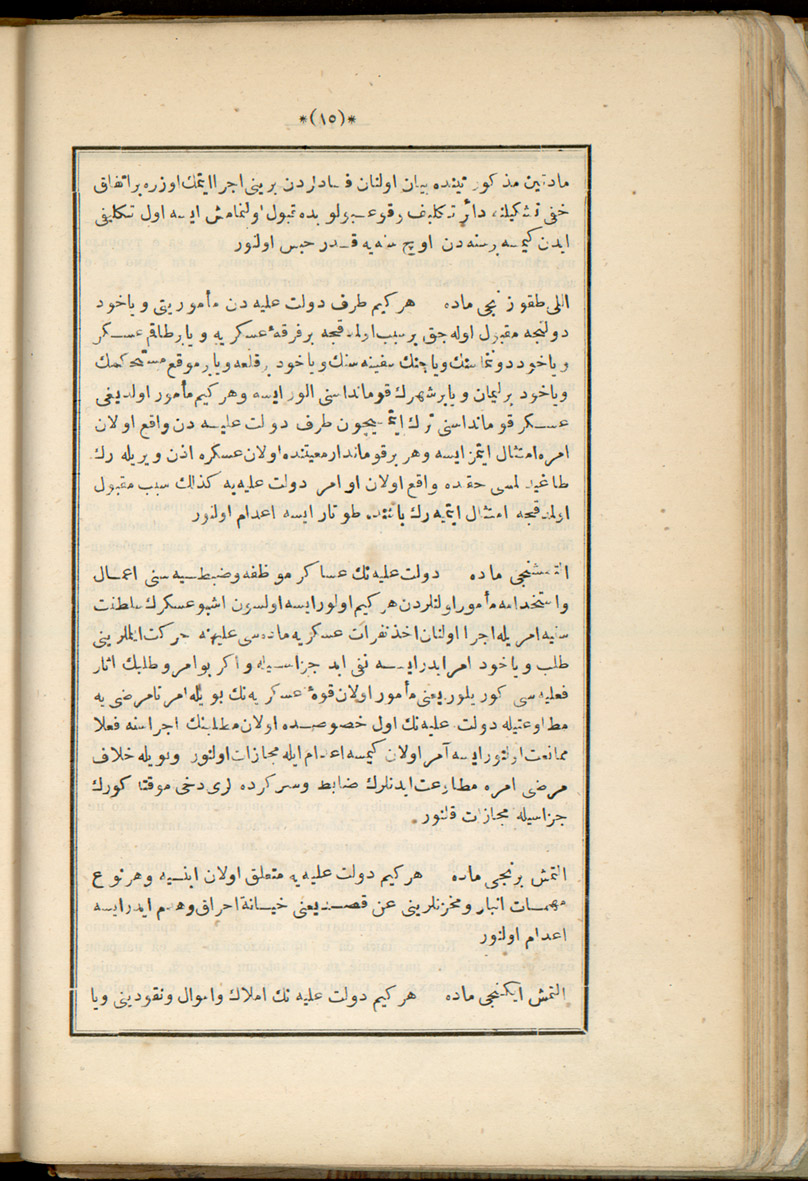 *(١٥)*
مادتين مذكورتينده بيان اولنان فسادلردن بريني اجرا ايتمك اوزره بر اتفاق
خفي تشكيلنه دائر تكليف وقوعبولوبده قبول اولنمامش ايسه اول تكليفي
ايدن كيمسه بر سنه دن اوچ سنه يه قدر حبس اولنور
اللي طقوزنجي ماده هركيم طرف دولت عليه دن مأموريتي و ياخود
دولتجه مقبول اوله جق بر سبب اولمدقجه بر فرقۀ عسكريه و يا بر طاقم عسكر
و ياخود دونماسنك ويا جنك سفينه سنك و ياخود بر قلعه و يا بر موقع مستحكمك
وياخود بر ليمان و يا بر شهرك قومانداسني الور ايسه و هركيم مأمور اولديغي
عسكر قومانداسني ترك ايتمسيچون طرف دولت عليه دن واقع اولان
امره امتثال ايتمز ايسه و هر بر قوماندار معيتنده اولان عسكره اذن ويريله رك
طاغيدلمسي حقنده واقع اولان اوامر دولت عليه يه كذالك سبب مقبول
اولمدقجه امتثال ايتميه رك ياننده طوتار ايسه اعدام اولنور
التمشنجي ماده دولت عليه نك عساكر موظفه و ضبطيه سني اعمال
و استخدامه مأمور اولنلردن هركيم اولور ايسه اولسون اشبو عسكرك سلطنت
سنيه امريله اجرا اولنان اخذ نفرات عسكريه ماده سي عليهنه حركت ايتملريني
طلب و ياخود امر ايدر ايسه نفي ابد جزاسيله و اكر بو امر و طلبك اثار
فعليه سي كوريلور يعني مأمور اولان قوۀ عسكريه نك بويله امر نامرضي يه
مطاوعتيله دولت عليه نك اول خصوصده اولان مطلبنك اجراسنه فعلا
ممانعت اولنور ايسه آمر اولان كيمسه اعدام ايله مجازات اولنور و بويله خلاف
مرضي امره مطاوعت ايدنلرك ضابط و سركرده لري دخي موقتا كورك
جزاسيله مجازات قلنور
التمش برنجي ماده هركيم دولت عليه يه متعلق اولان ابنيه و هر نوع
مهمات انبار و مخزنلريني عن قصد يعني خيانة احراق و هدم ايدر ايسه
اعدام اولنور
التمش ايكنجي ماده هركيم دولت عليه نك املاك و اموال و نقوديني ويا